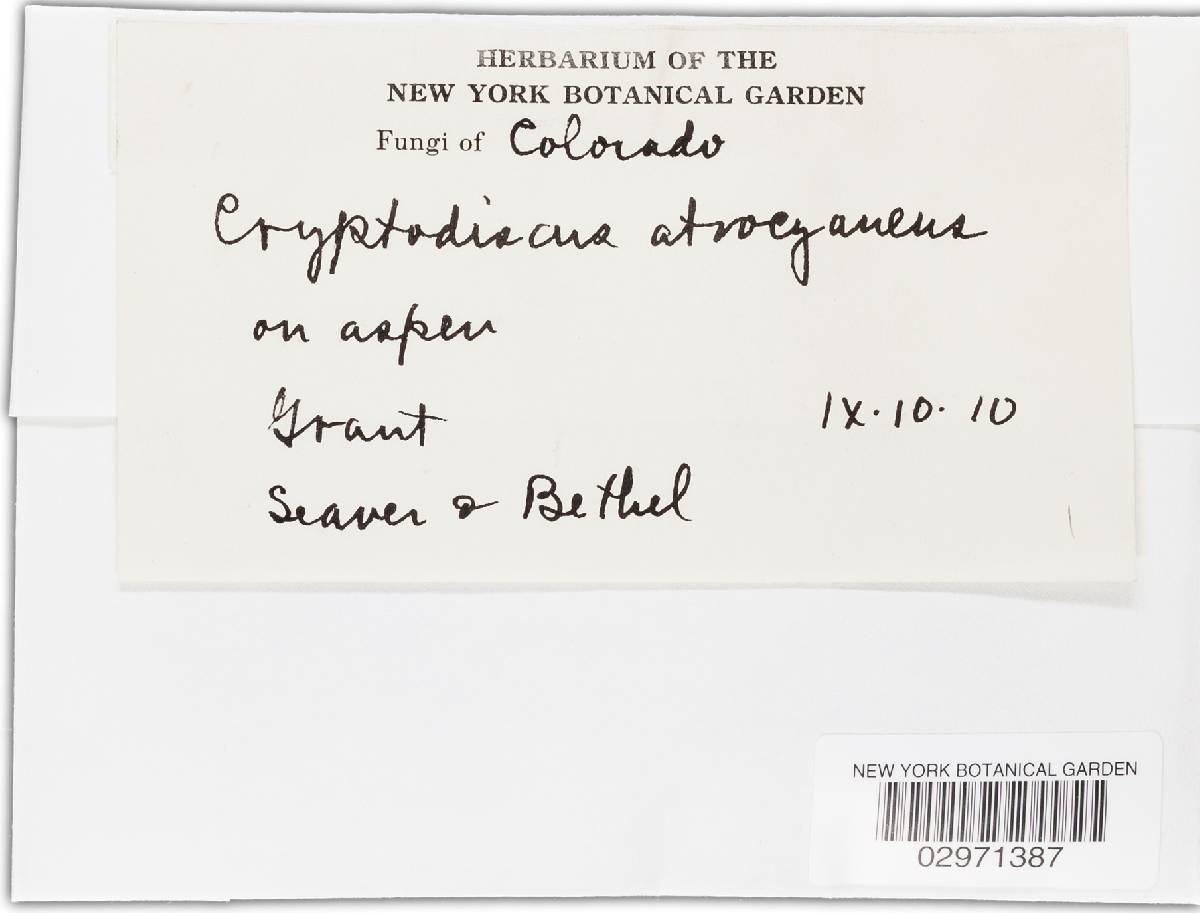 HERBARIUM OF THE
NEW YORK BOTANICAL GARDEN
Fungi of Colorado
Cryptodiscus atrocyaneus
on aspen
Grant IX·10·10
Seaver & Bethel
NEW YORK BOTANICAL GARDEN
02971387